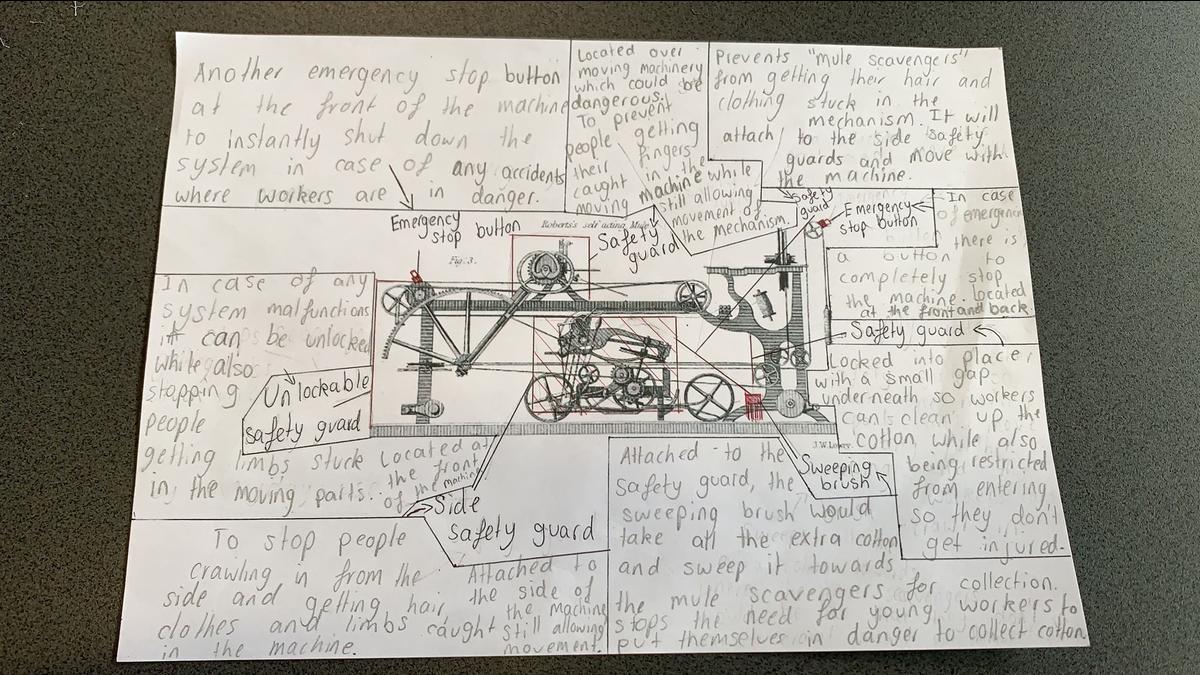 Another emergency stop button
at the front of the machine
to instantly shut down the
system in case of any accidents
where workers are in danger.
Emergency
stop button
Located over
moving machinery
which could be
dangerous.
To prevent
people getting
their fingers
caught in the
moving machine while
still allowing
movement of
the mechanism.
Safety
guard
Prevents "mule scavengers"
from getting their hair and
clothing stuck in the
mechanism. It will
attach to the side safety
guards and move with
the machine.
Safety
guard
Emergency
stop button
In case
of emergency
there is
a button to
completely stop
the machine. Located
at the front and back
Roberts's self acting Mule
Fig. 3.
In case of any
system malfunctions
it can be unlocked
while also
stopping
people
getting limbs stuck
in the moving parts.
Unlockable
safety guard
Located at
the front
of the machine
Safety guard
Locked into place
with a small gap
underneath so workers
can clean up the
cotton while also
being restricted
from entering
so they don't
get injured.
J.W. Lowry
Side
safety guard
To stop people
crawling in from the
side and getting hair
clothes and limbs caught
in the machine.
Attached to
the side of
the machine
still allowing
movement.
Sweeping
brush
Attached to the
safety guard, the
sweeping brush would
take all the extra cotton
and sweep it towards
the mule scavengers for collection.
stops the need for young workers to
put themselves in danger to collect cotton.